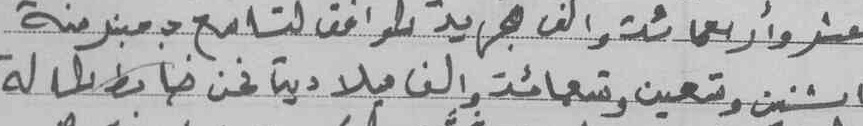 عشر وأربعمائة وألف هجرية الموافق لتاسع دجنبر سنة
اثنين وتسعين وتسعمائة وألف ميلادية نحن ضابط الحالة